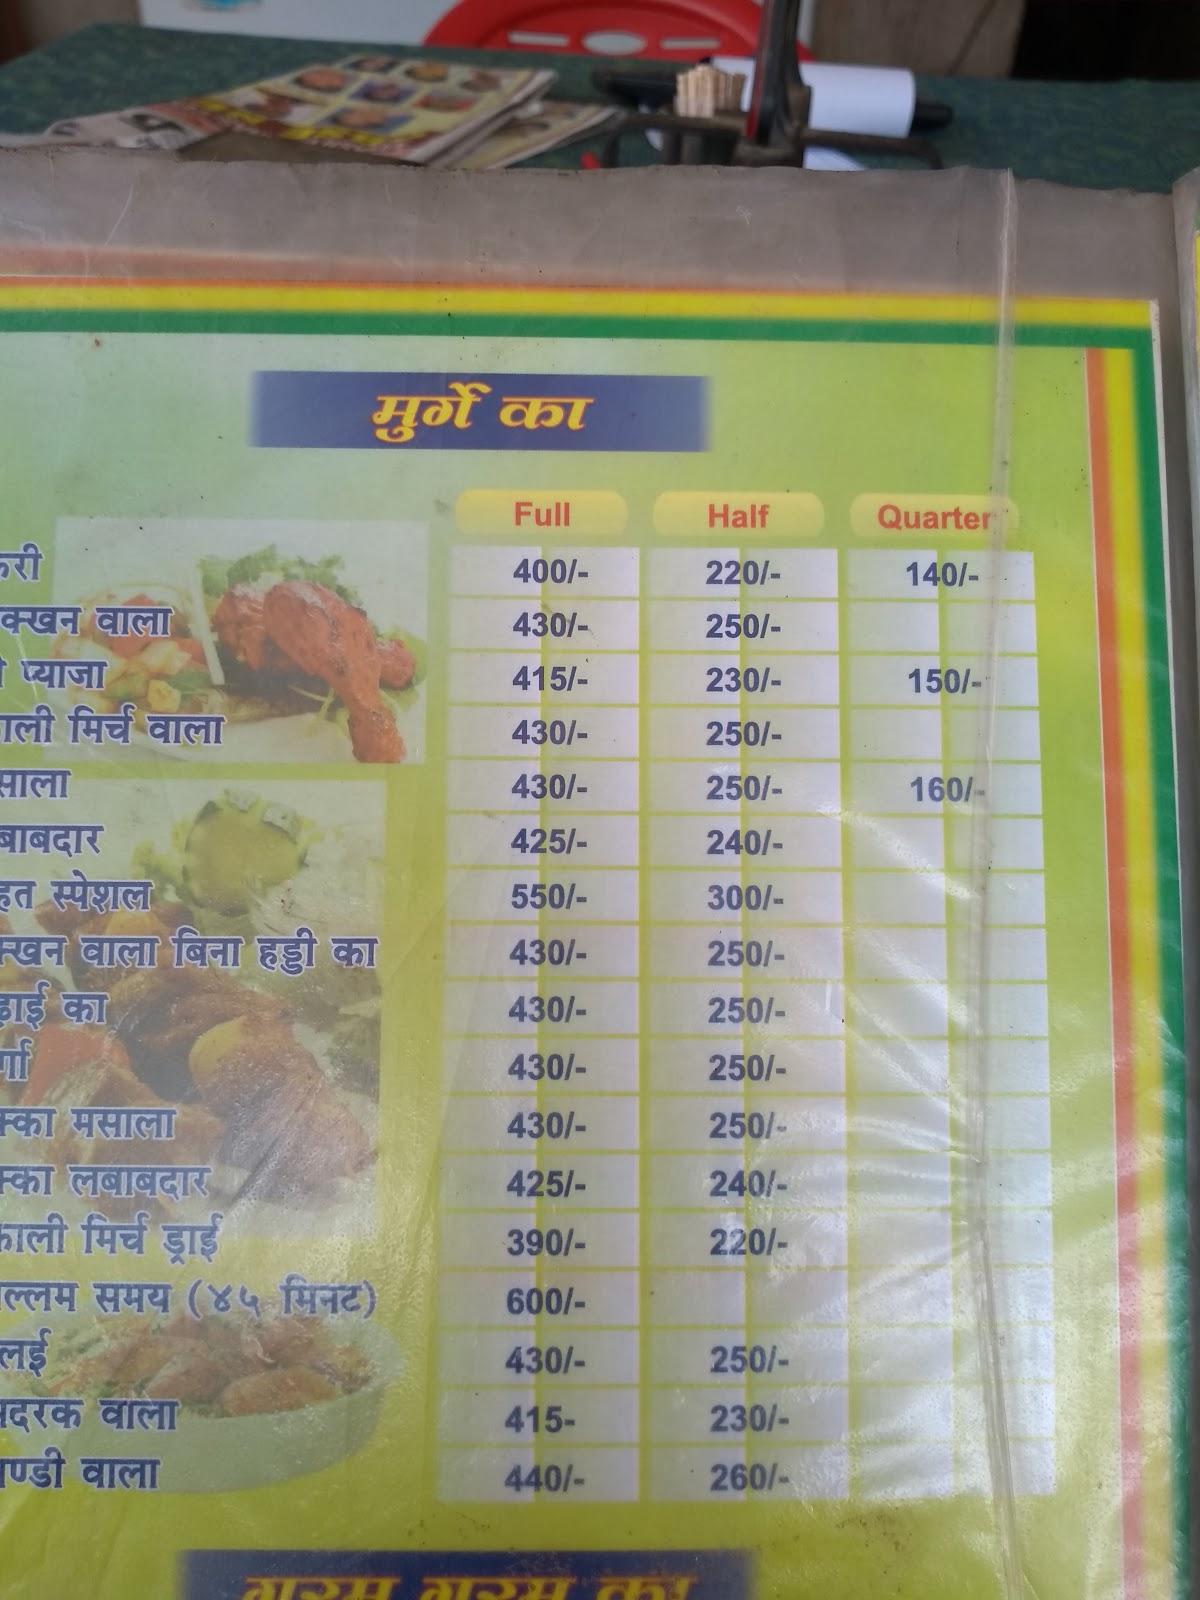 मुर्गे का
Full Half Quarter
करी 400/- 220/- 140/-
क्खन वाला 430/- 250/-
प्याजा 415/- 230/- 150/-
ाली मिर्च वाला 430/- 250/-
साला 430/- 250/- 160/-
बाबदार 425/- 240/-
हत स्पेशल 550/- 300/-
क्खन वाला बिना हड्डी का 430/- 250/-
ढ़ाई का 430/- 250/-
र्गा 430/- 250/-
क्का मसाला 430/- 250/-
क्का लबाबदार 425/- 240/-
काली मिर्च ड्राई 390/- 220/-
ल्लम समय (४५ मिनट) 600/-
लई 430/- 250/-
दरक वाला 415- 230/-
ण्डी वाला 440/- 260/-
गरम गरम का